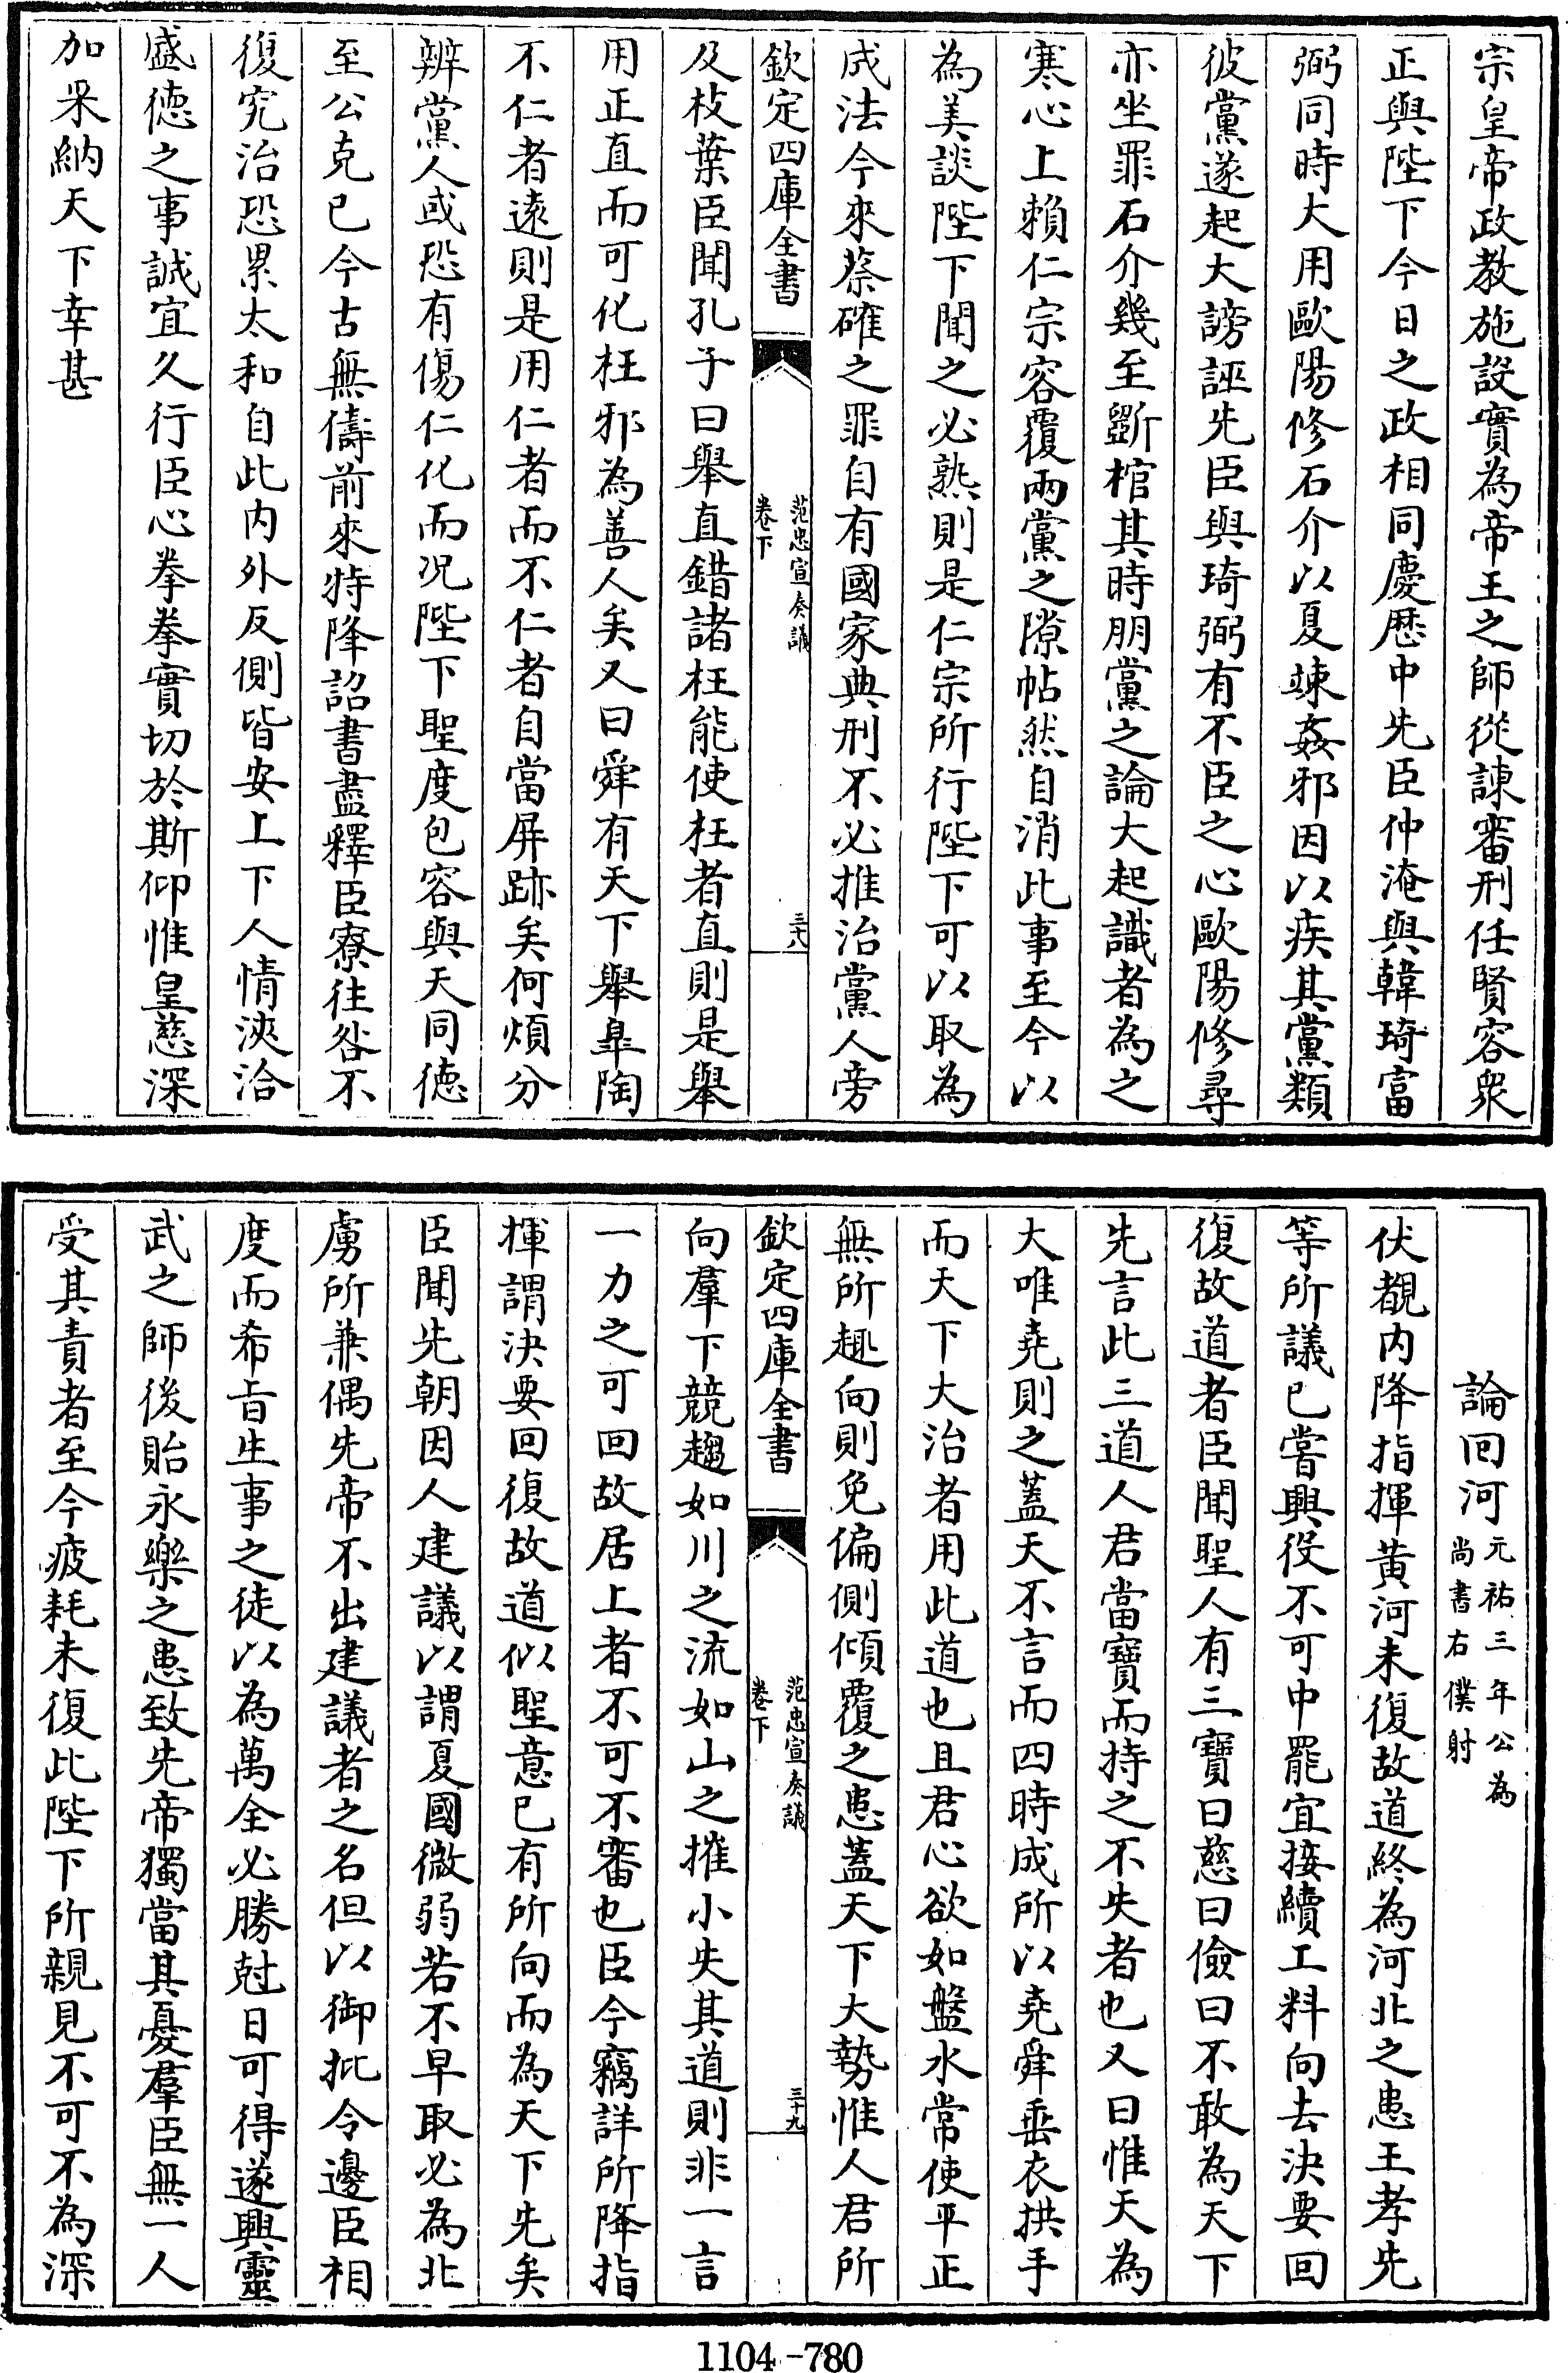 宗皇帝政教施設實為帝王之師從諫審刑任賢容衆
正與陛下今日之政相同慶厯中先臣仲淹與韓琦富
弼同時大用歐陽修石介以夏竦姦邪因以疾其黨類
彼黨遂起大謗誣先臣與琦弼有不臣之心歐陽修尋
亦坐罪石介幾至斵棺其時朋黨之論大起識者為之
寒心上賴仁宗容覆兩黨之隙帖然自消此事至今以
為美談陛下聞之必熟則是仁宗所行陛下可以取為
成法今來蔡確之罪自有國家典刑不必推治黨人旁
欽定四庫全書
范忠宣奏議
卷下
三十八
及枝葉臣聞孔子曰舉直錯諸枉能使枉者直則是舉
用正直而可化枉邪為善人矣又曰舜有天下舉臯陶
不仁者遠則是用仁者而不仁者自當屏跡矣何煩分
辨黨人或恐有傷仁化而况陛下聖度包容與天同德
至公克已今古無儔前來特降詔書盡釋臣寮往咎不
復究治恐累太和自此内外反側皆安上下人情浹洽
盛德之事誠宜久行臣心拳拳實切於斯仰惟皇慈深
加采納天下幸甚
論回河
元祐三年公為
尚書右僕射
伏覩内降指揮黄河未復故道終為河北之患王孝先
等所議已嘗興役不可中罷宜接續工料向去決要回
復故道者臣聞聖人有三寶曰慈曰儉曰不敢為天下
先言此三道人君當寶而持之不失者也又曰惟天為
大唯堯則之蓋天不言而四時成所以堯舜垂衣拱手
而天下大治者用此道也且君心欲如盤水常使平正
無所趣向則免偏側傾覆之患蓋天下大勢惟人君所
欽定四庫全書
范忠宣奏議
卷下
三十九
向羣下競趨如川之流如山之摧小失其道則非一言
一力之可回故居上者不可不審也臣今竊詳所降指
揮謂決要回復故道似聖意已有所向而為天下先矣
臣聞先朝因人建議以謂夏國微弱若不早取必為北
虜所兼偶先帝不出建議者之名但以御批令邊臣相
度而希旨生事之徒以為萬全必勝尅日可得遂興靈
武之師後貽永樂之患致先帝獨當其憂羣臣無一人
受其責者至今疲耗未復此陛下所親見不可不為深
1104-780